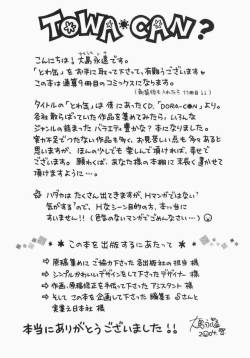 TOWA*CAN?
こんにちは！大島永遠です。
「とわ缶」をお手に取って下さって、有難うございます♥
この本は通算9冊目のコミックスになります。
(新装版も入れたら11冊目！！)
タイトルの「とわ缶」は 侍にあったCD、「DORA-CON」より。
各社散らばっていた作品を集めてみたら、いろんな
ジャンルの詰まったバラエティ豊かな？本になりました。
実力不足でつたない作品も多く、お見苦しい点も多々あると
思いますが、ほんの少しでも楽しんで頂ければ、幸せで
ございます。願わくば、あなた様の本棚に末長く置かせて
頂けますように…。
ハダカはたくさん出てきますが、Hマンガではない
気がするので、Hなシーン目的の方、本当に
すいません！！(色気のないマンガでごめんなさい…)
この本を出版するにあたって
原稿集めにご協力下さった各出版社の担当様
シンプルかわいいデザインをして下さったデザイナー様
作画、原稿修正を手伝って下さったアシスタント様
そしてこの本を企画して下さった編集長Sさんと
実業之日本社様
本当にありがとうございました！！
大島永遠
2004.